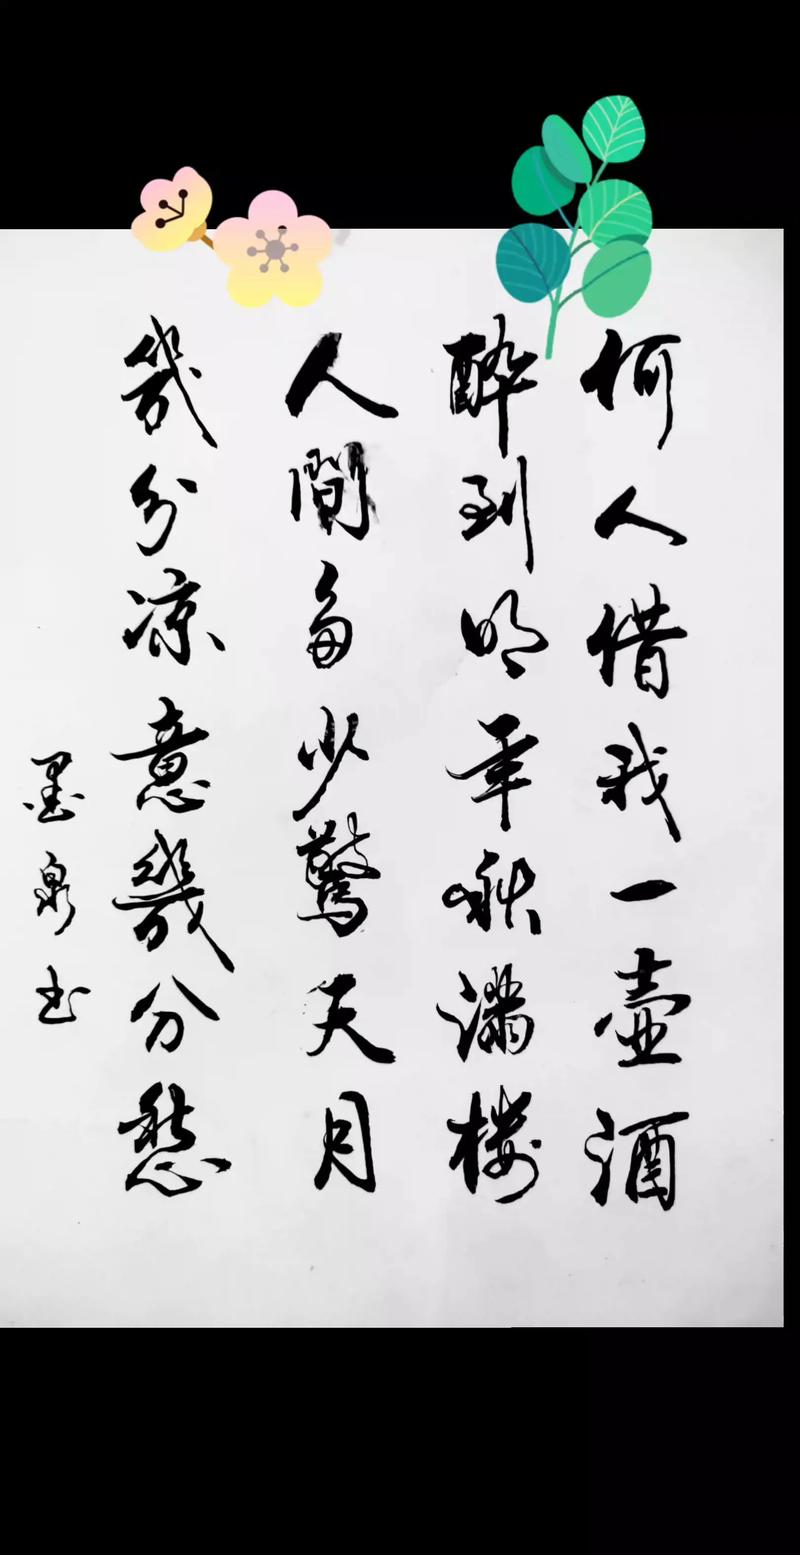 何人借我一壺酒
醉到明年秋满楼
人間多少驚天月
幾分凉意幾分愁
墨泉书